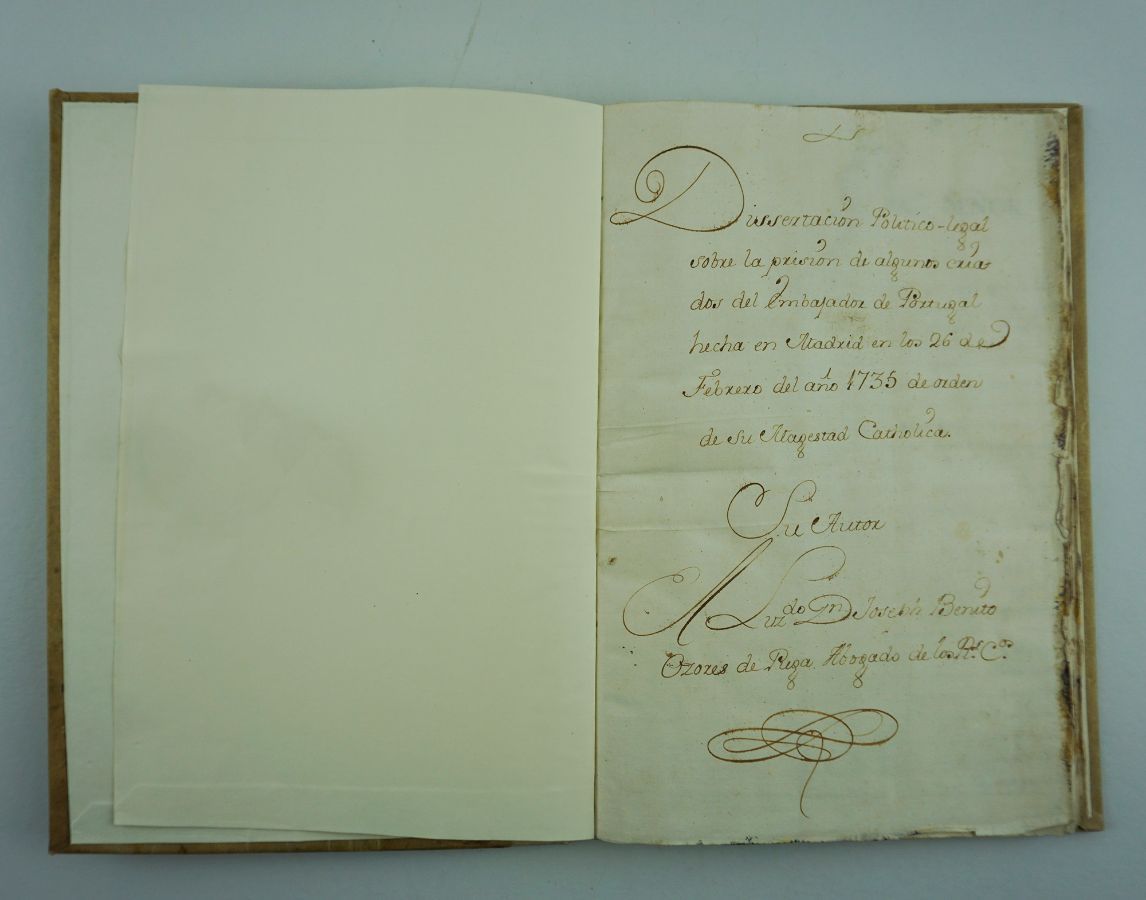 Dissertación Politico-legal
sobre la prisión de algunos cria
dos del Embajador de Portugal
hecha en Madrid en los 26 de
Febrero del año 1735 de orden
de su Magestad Catholica.
Su Autor
Lizdo Dn Joseph Benito
Ozores de Rega Abogado de los Rs Cos